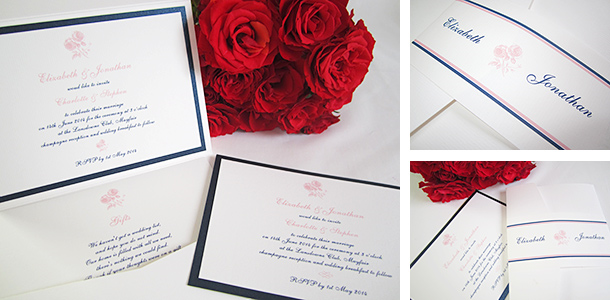 Elizabeth & Jonathan
would like to invite
Charlotte & Stephen
to celebrate their marriage
on 14th June 2014 for the ceremony at 2 o'clock
at the Lansdowne Club, Mayfair
champagne reception and wedding breakfast to follow
RSVP by 1st May 2014
Gifts
We haven't got a wedding list,
and hope you do not mind,
Our home is filled with all we need,
there's nothing we could find.
your thoughts
Elizabeth & Jonathan
would like to invite
Charlotte & Stephen
to celebrate their marriage
on 14th June 2014 for the ceremony at 2 o'clock
at the Lansdowne Club, Mayfair
champagne reception and wedding breakfast to follow
RSVP by 1st May 2014
Elizabeth
Jonathan
Elizabeth
Jonathan